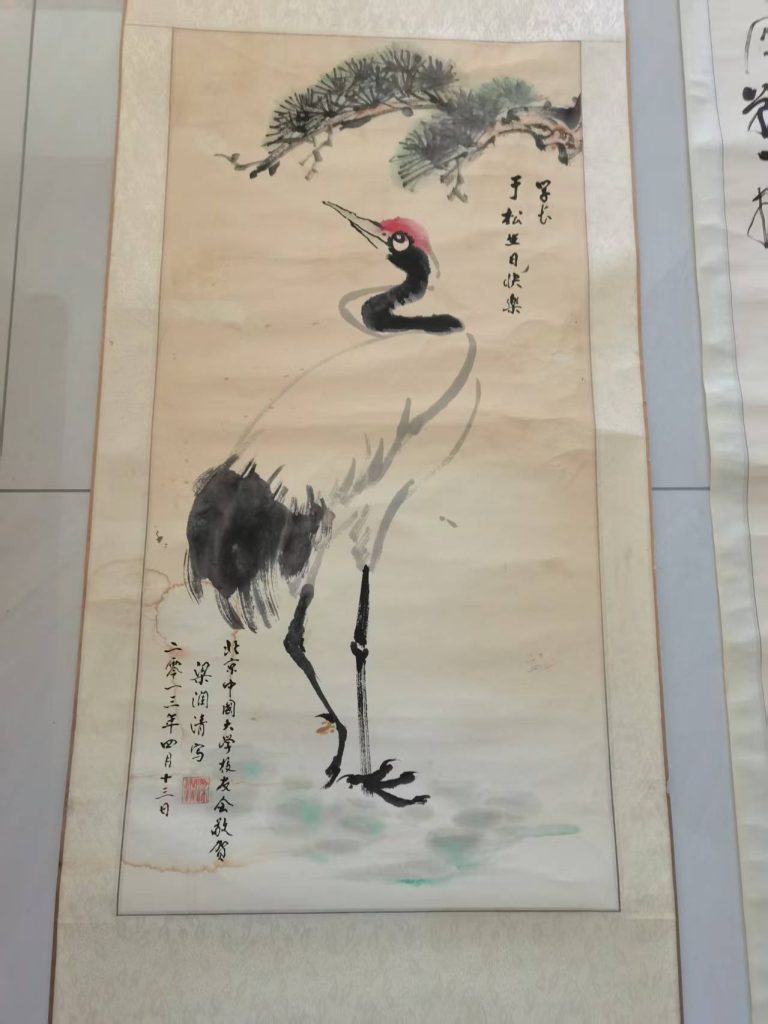 学长
于松生日快樂
北京中國大学校友会敬贺
梁润清写
二零一三年四月十三日